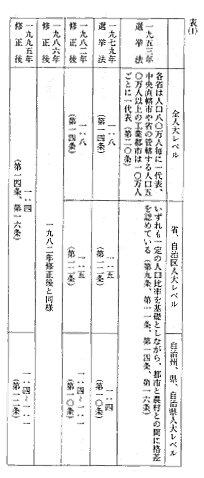 表(1)
全人大レベル
省、自治区人大レベル
自治州、県、自治県人大レベル
一九五三年
選挙法
各省は人口八〇万人毎に一代表、
中央直轄市や省の管轄する人口五
〇万人以上の工業都市は一〇万人
ごとに一代表(第二〇条)
いずれも一定の人口比率を基礎としながら、都市と農村との間に格差
を認めている(第九条、第一一条、第一四条、第一六条)
一九七九年
選挙法
一:八
(第一四条)
一:五
(第一二条)
一:四
(第一〇条)
一九八二年
修正後
一:八
(第一四条)
一:五
(第一二条)
一:四~一:一
(第一〇条)
一九八六年
修正後
一九八二年修正後と同様
一九九五年
修正後
一:四
(第一四条、第一六条)
一:四~一:一
(第一二条)